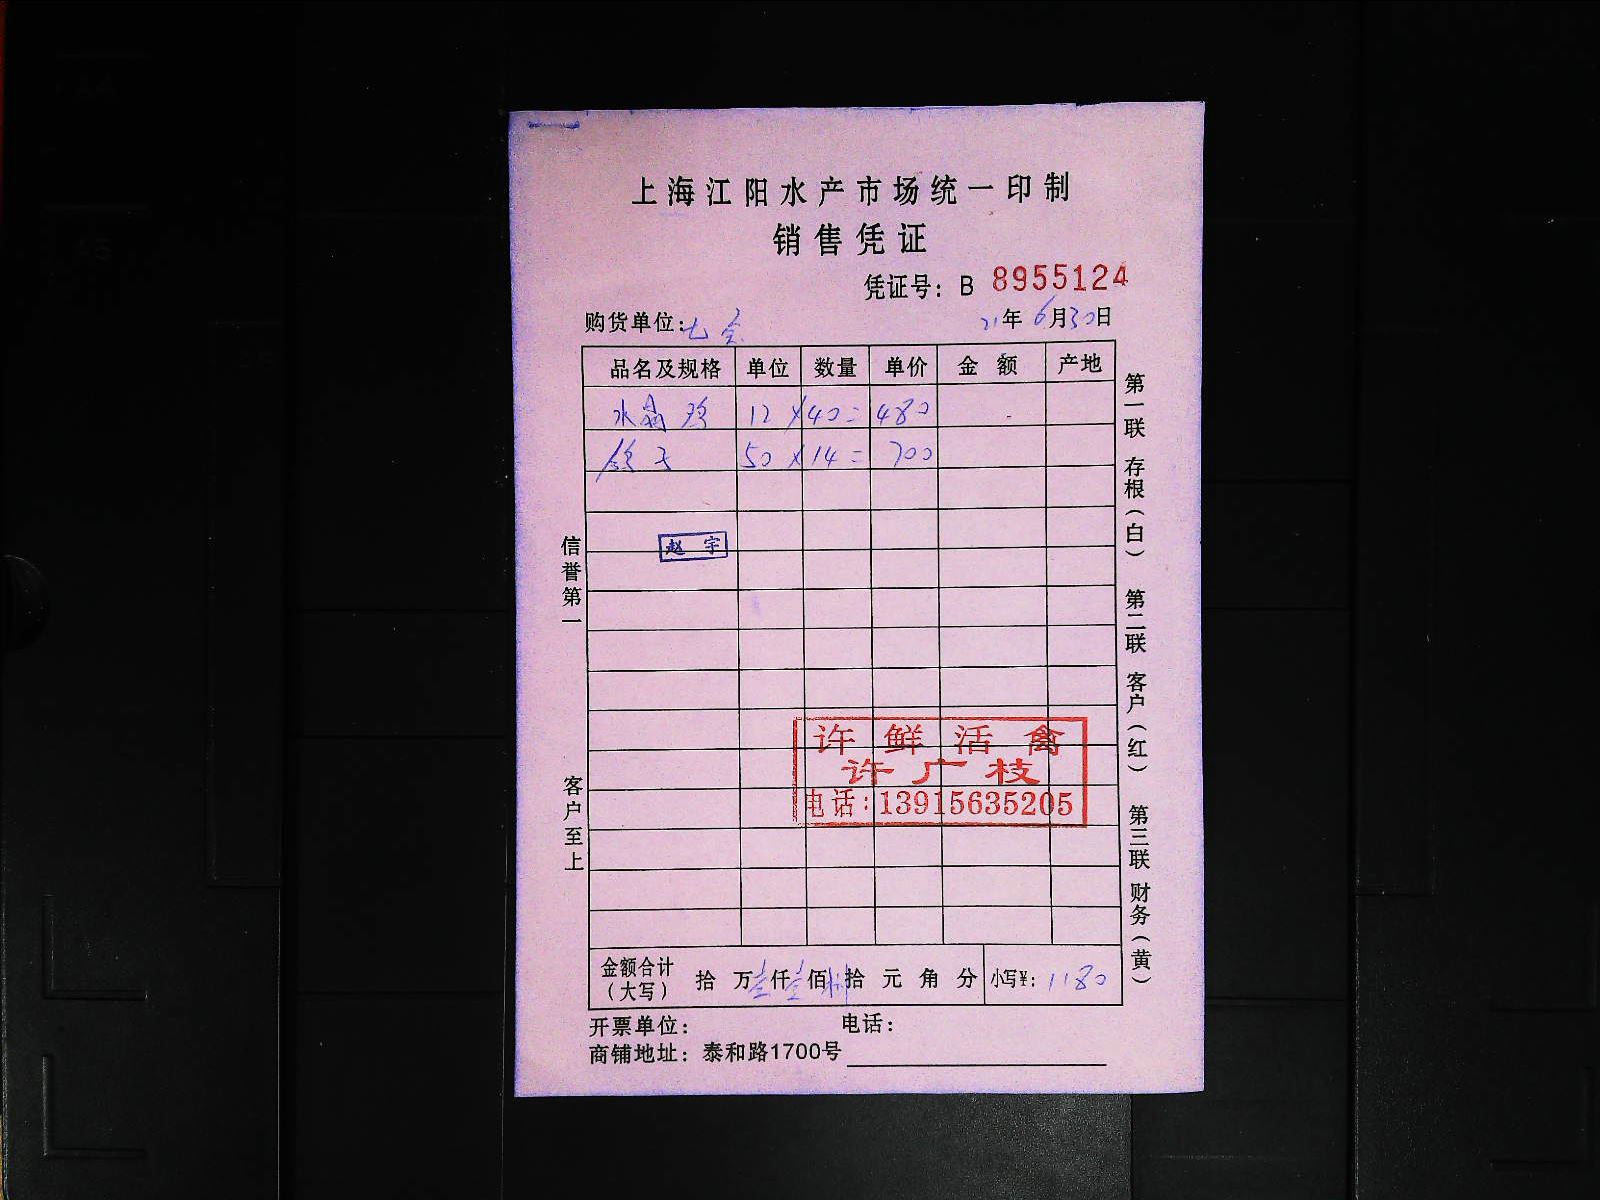 上海江阳水产市场统一印制
销售凭证
凭证号：B 8955124
购货单位：七会
21年6月30日
品名及规格 单位 数量 单价 金额 产地
水晶鸡 12 ×40= 480
鸽子 50 ×14= 700
赵宇
许鲜活禽
许广枝
电话：13915635205
金额合计（大写） 拾 万壹仟壹佰捌拾 元 角 分 小写¥：1180
开票单位： 电话：
商铺地址：泰和路1700号
信誉第一 客户至上
第一联 存根（白） 第二联 客户（红） 第三联 财务（黄）